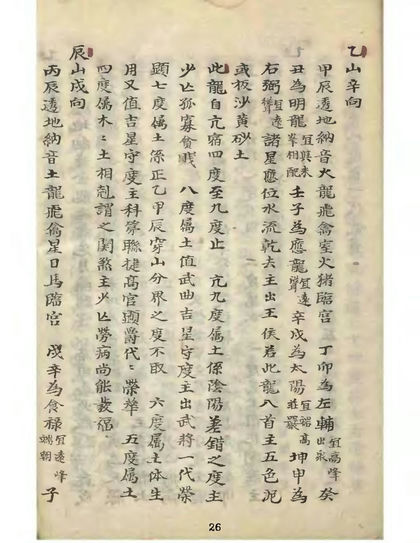 乙山辛向
甲辰透地納音火龍飛禽室火猪臨官 丁卯為左輔宜高峰出衆癸
丑為明龍宜與耒峯相配壬子為應龍宜遠聳辛戌為太陽宜端高莊嚴坤申為
右弼宜遠聳諸星應位水流乾去主出王侯若此龍入首主五色泥
或板沙黄砂土
此龍自亢宿四度至九度止 亢九度属土係陰陽差錯之度主
少亡孤寡貧賤 八度属土值武曲吉星守度主出武將一代榮
顕七度属土係正乙甲辰穿山分界之度不取 六度属土体生
用又值吉星守度主科第聯捷高官顕爵代〻榮華 五度属土
四度属木〻土相剋謂之関煞主少亡勞病尚能發福
辰山戌向
丙辰透地納音土龍飛禽星日馬臨官 戌辛為食禄宜遠峰端朝子
26